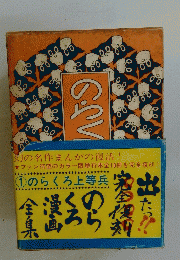 のらく
幻の名作まんがの復活!
①のらくろ上等兵
出た!!
完全復刻
のらくろ
漫画
全集